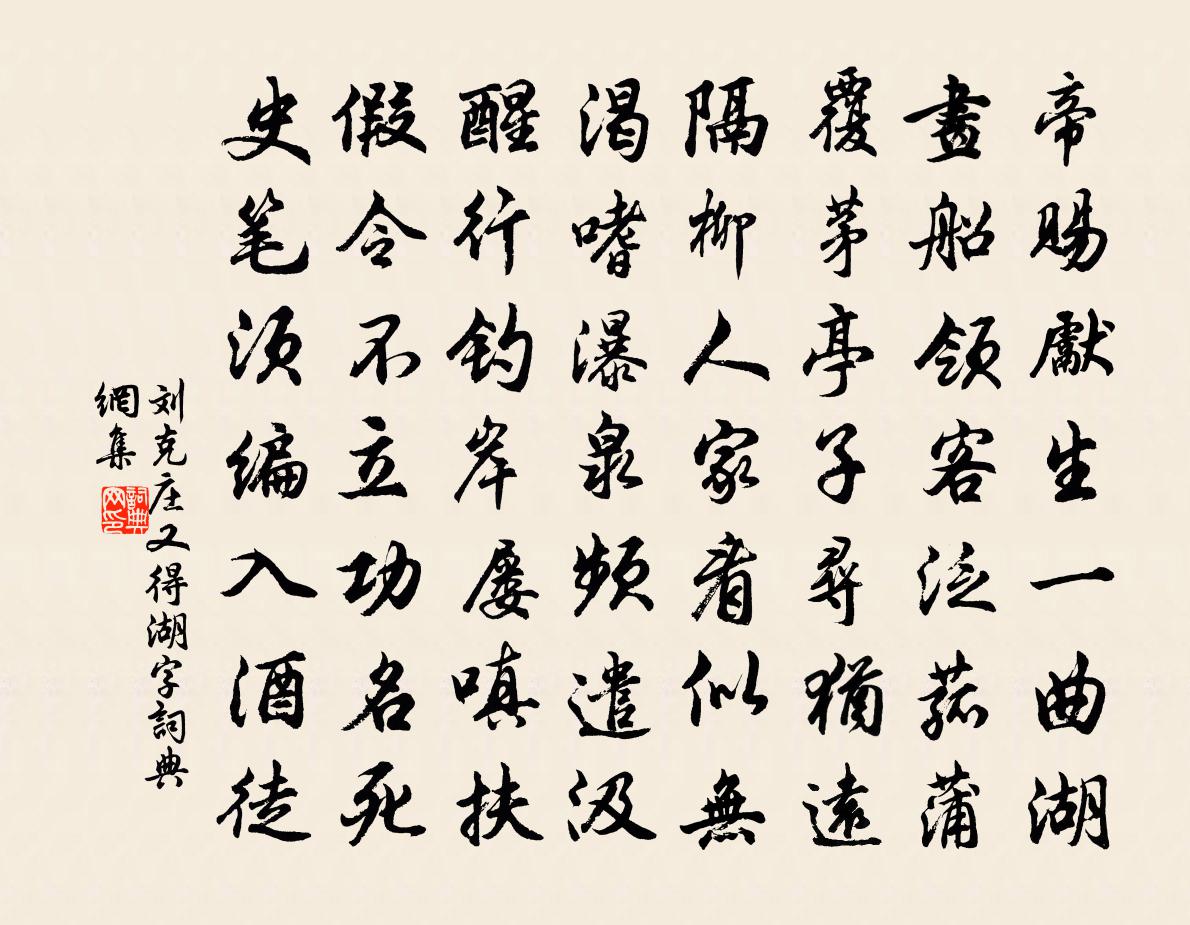 帝賜獻生一曲湖
畫船領客泛菰蒲
覆茅亭子尋猶遠
隔柳人家看似無
渴嗜瀑泉頻遣汲
醒行钓岸屡嗔扶
假令不立功名死
史笔须编入酒徒
刘克庄又得湖字詞典
網集
詞典网印